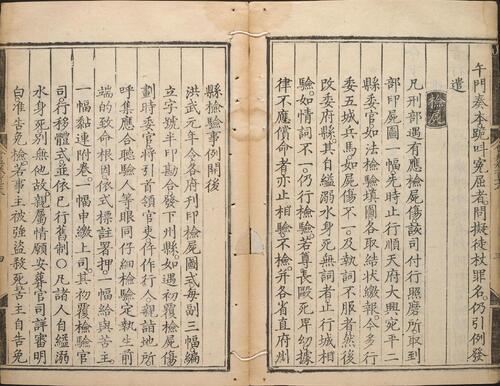 午門奏本跪叫寃屈者問擬徒杖罪名仍引例發
遣
檢屍
凡刑部遇有應檢屍傷該司付行照磨所取到
部印屍圖一幅先時止行順天府大興宛平二
縣委官如法檢驗填圖各取結狀繳報今多行
委五城兵馬如屍傷不一及執詞不服者然後
改委府縣其自縊溺水身死無詞者止行城相
驗如情詞不一仍行檢驗若尊長毆死卑幼據
律不應償命者亦止相驗不檢并各省直府州
縣檢驗事例開後
洪武元年令各府刋印檢屍圖式每副三幅編
立字號半印勘合發下州縣如遇初覆檢屍傷
劃時委官將引首領官吏仵作行人親詣地所
呼集應合聽驗人等眼同仔細檢驗定執生前
端的致命根因依式標註署押一幅給與苦主
一幅黏連附卷一幅申繳上司其初覆檢驗官
司行移體式並依已行舊制〇凡諸人自縊溺
水身死別無他故親屬情願安葬官司詳審明
白准告免檢若事主被強盜殺死苦主自告免